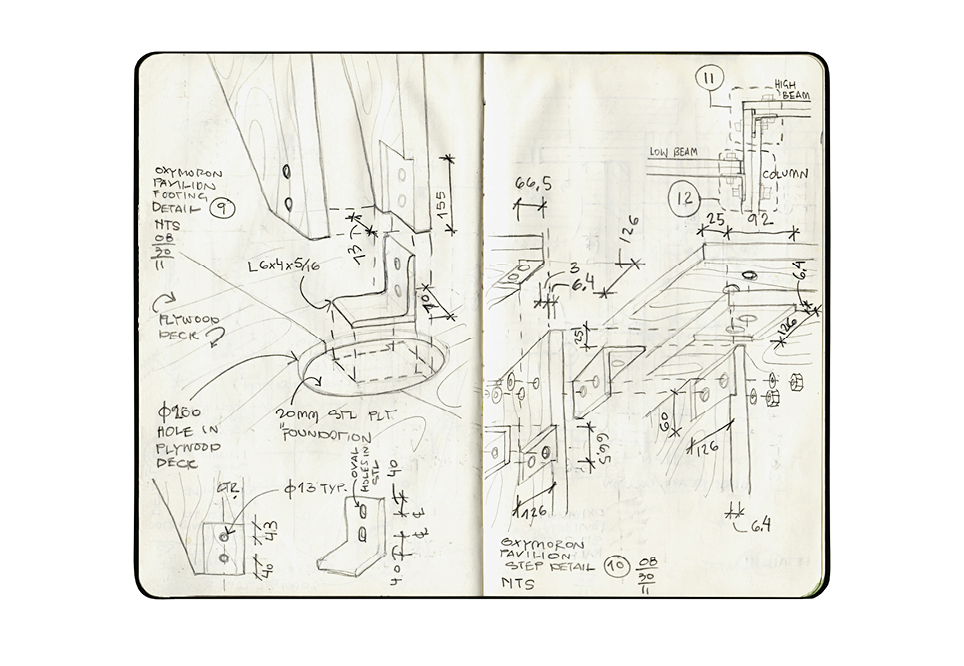 OXYMORON
PAVILION
FOOTING
DETAIL 9
NTS
08
30
11
155
13
L 6x4x5/16
70
PLYWOOD
DECK
HOLE IN
PLYWOOD
DECK
20MM STL PLT
"FOUNDATION
CTR.
φ13 TYP.
43
40
OVAL
HOLES IN
STL
40
℄
℄
40
11
HIGH
BEAM
LOW BEAM
COLUMN
12
66,5
126
25 92
3
6.4
6.4
25
126
60
66.5
126
126
6.4
OXYMORON
PAVILION
STEP DETAIL 10
NTS
08
30
11